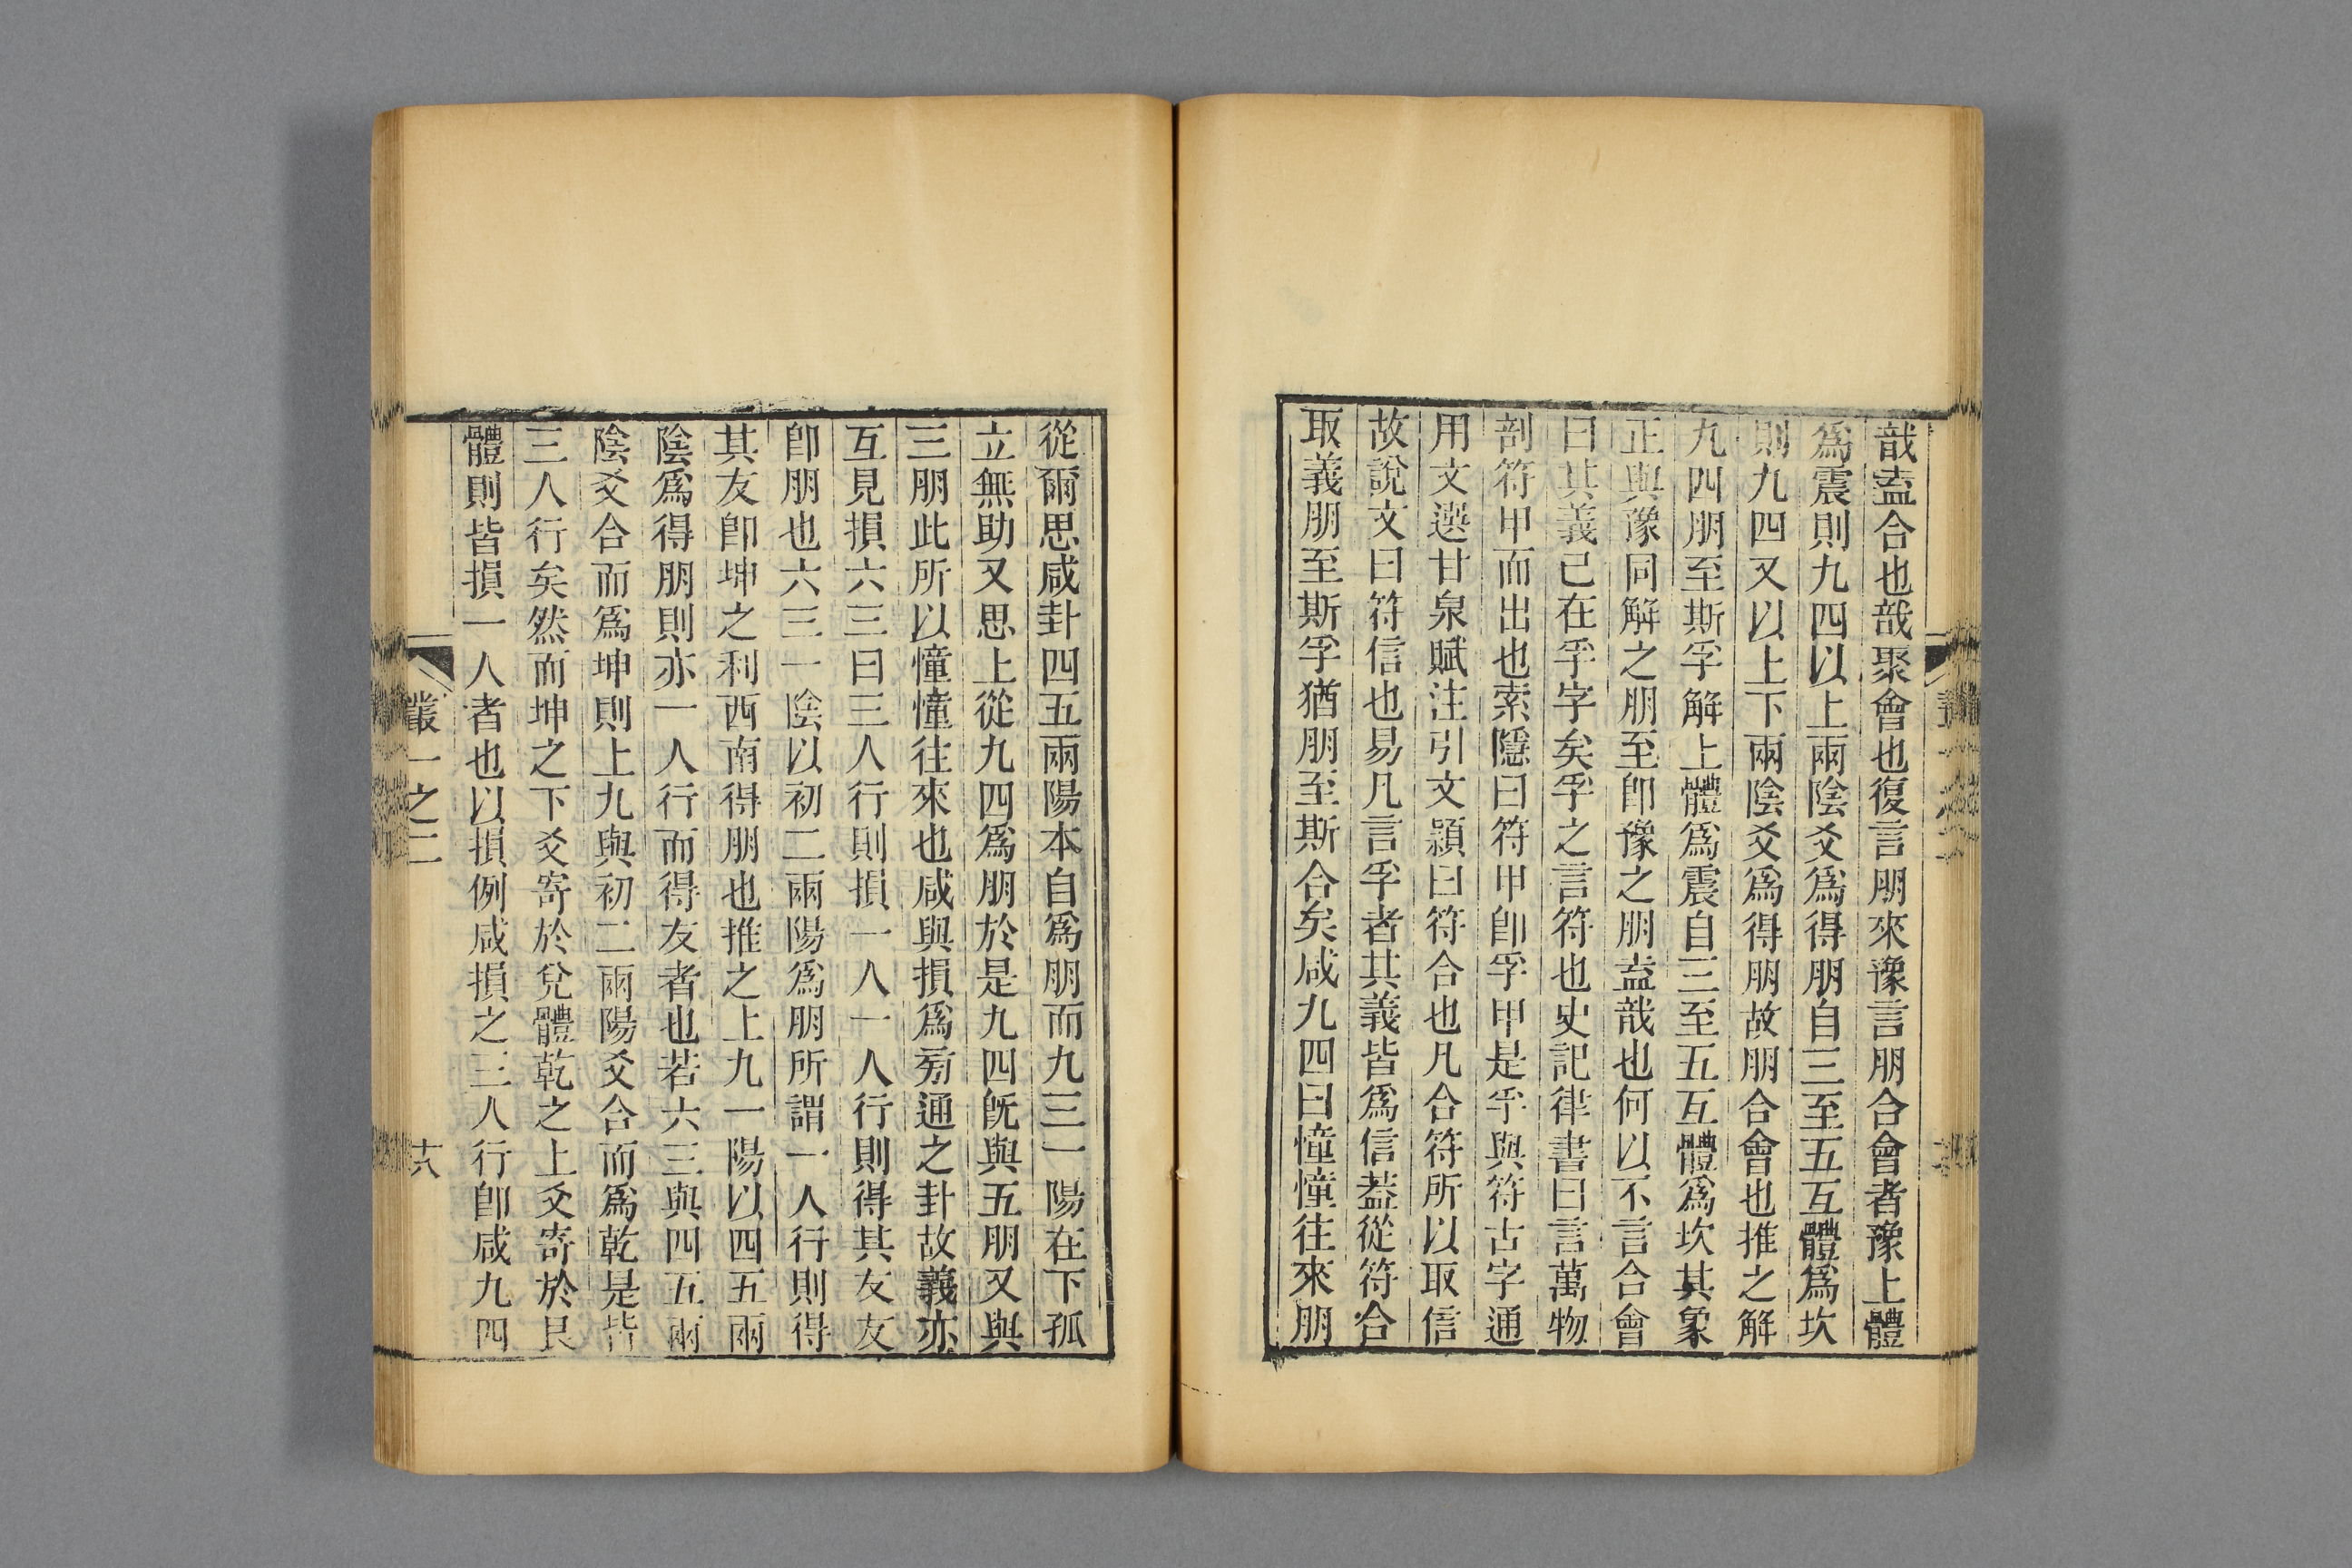 戠盍合也戠聚會也復言朋來豫言朋合會者豫上體
爲震則九四以上兩陰爻爲得朋自三至五互體爲坎
則九四又以上下兩陰爻爲得朋故朋合會也推之解
九四朋至斯孚解上體爲震自三至五互體爲坎其象
正與豫同解之朋至卽豫之朋盍戠也何以不言合會
曰其義已在孚字矣孚之言符也史記律書曰言萬物
剖符甲而出也索隱曰符甲卽孚甲是孚與符古字通
用文選甘泉賦注引文穎曰符合也凡合符所以取信
故說文曰符信也易凡言孚者其義皆爲信葢從符合
取義朋至斯孚猶朋至斯合矣咸九四曰憧憧往來朋
從爾思咸卦四五兩陽本自爲朋而九三一陽在下孤
立無助又思上從九四爲朋於是九四旣與五朋又與
三朋此所以憧憧往來也咸與損爲旁通之卦故義亦
互見損六三曰三人行則損一人一人行則得其友友
卽朋也六三一陰以初二兩陽爲朋所謂一人行則得
其友卽坤之利西南得朋也推之上九一陽以四五兩
陰爲得朋則亦一人行而得友者也若六三與四五兩
陰爻合而爲坤則上九與初二兩陽爻合而爲乾是皆
三人行矣然而坤之下爻寄於兌體乾之上爻寄於艮
體則皆損一人者也以損例咸損之三人行卽咸九四
叢一之二
十六